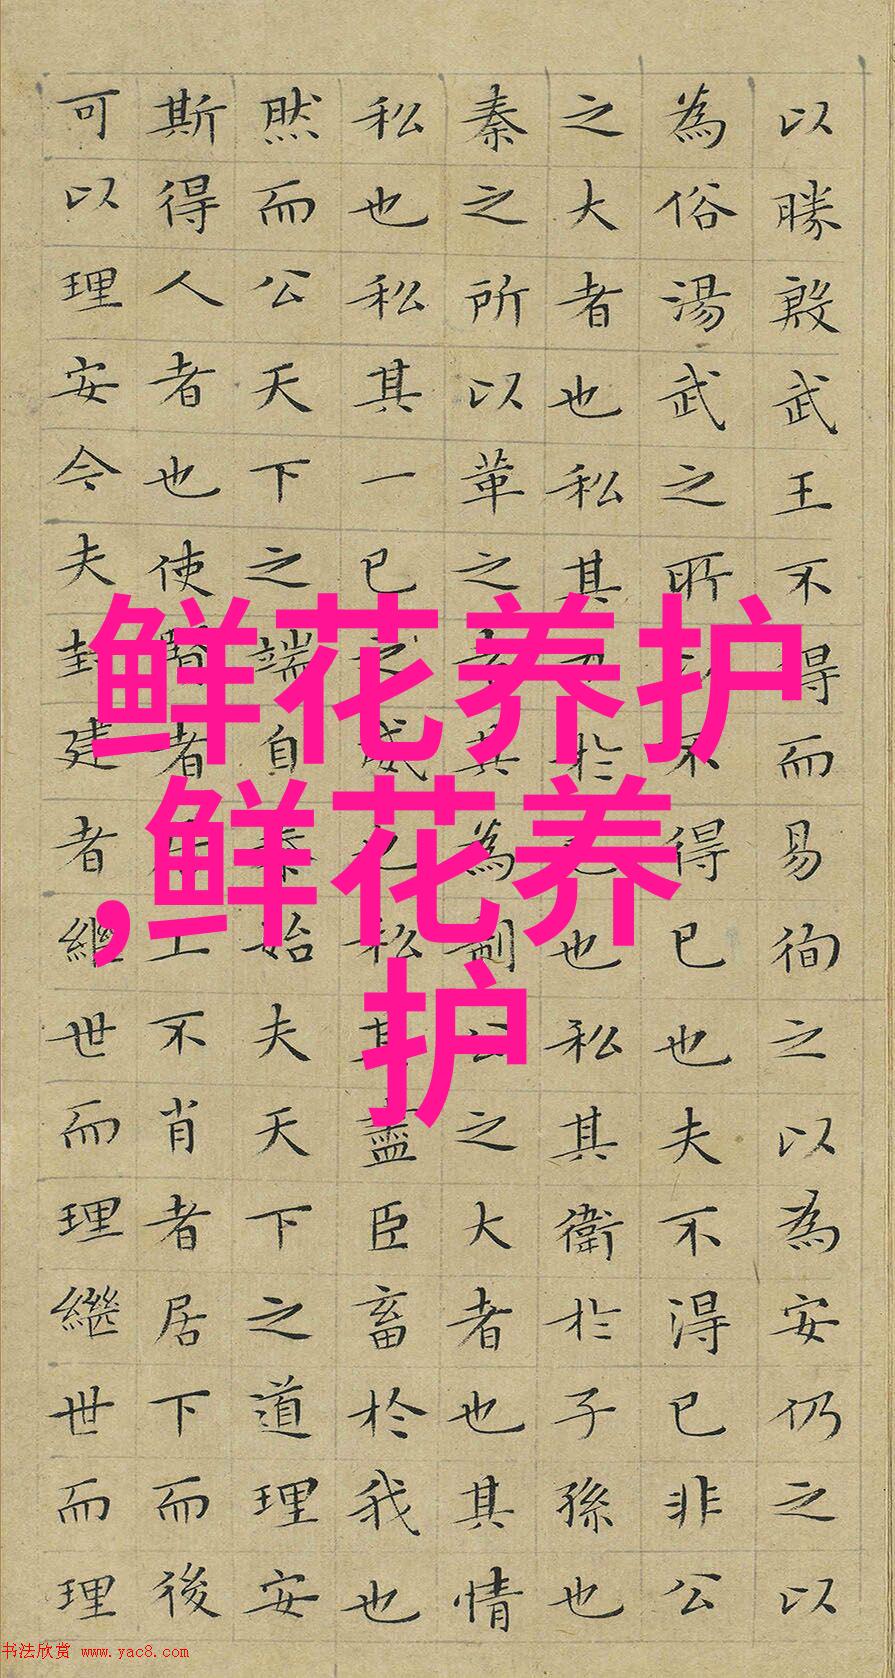 以勝殷武王不得而易徇之以為安仍之以
為俗湯武之所以不得已也夫不得已非公
之大者也私其力於己也私其衛於子孫也
秦之所以革之者其為制公之大者也其情
私也私其一己之威也私其盡臣畜於我也
然而公天下之端自秦始夫天下之道理安
斯得人者也使賢者居上不肖者居下而後
可以理安今夫封建者繼世而理繼世而理
鲜花养护
,鲜花养
护
书法欣赏 www.yac8.com